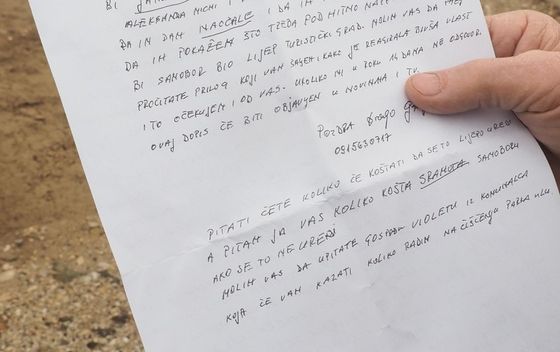 BI
ALEKSANDA MICHI I
DA IM DAM NAOČALE I DA IH
DA IM POKAŽEM ŠTO TREBA POD HITNO
BI SAMOBOR BIO LIJEP TURISTIČKI GRAD. MOLIM VAS DA
PROČITATE PRILOG KOJI VAM ŠALJEM I KAKO JE REAGIRALA BIVŠA VLAST
I TO OČEKUJEM I OD VAS. UKOLIKO MI U ROKU 14 DANA NE ODGOVOR.
OVAJ DOPIS ĆE BITI OBJAVLJEN U NOVINAMA I TV.
POZDRAV Drago
0915630717
PITATI ĆETE KOLIKO ĆE KOŠTATI DA SE TO LIJEPO UREDI
A PITAM JA VAS KOLIKO KOŠTA SRAMOTA SAMOBORU
AKO SE TO NE UREDI
MOLIM VAS DA UPITATE GOSPOĐU VIOLETU IZ KOMUNALCA
KOJA ĆE VAM KAZATI KOLIKO RADIM NA ČIŠĆENJU PARKA U LU